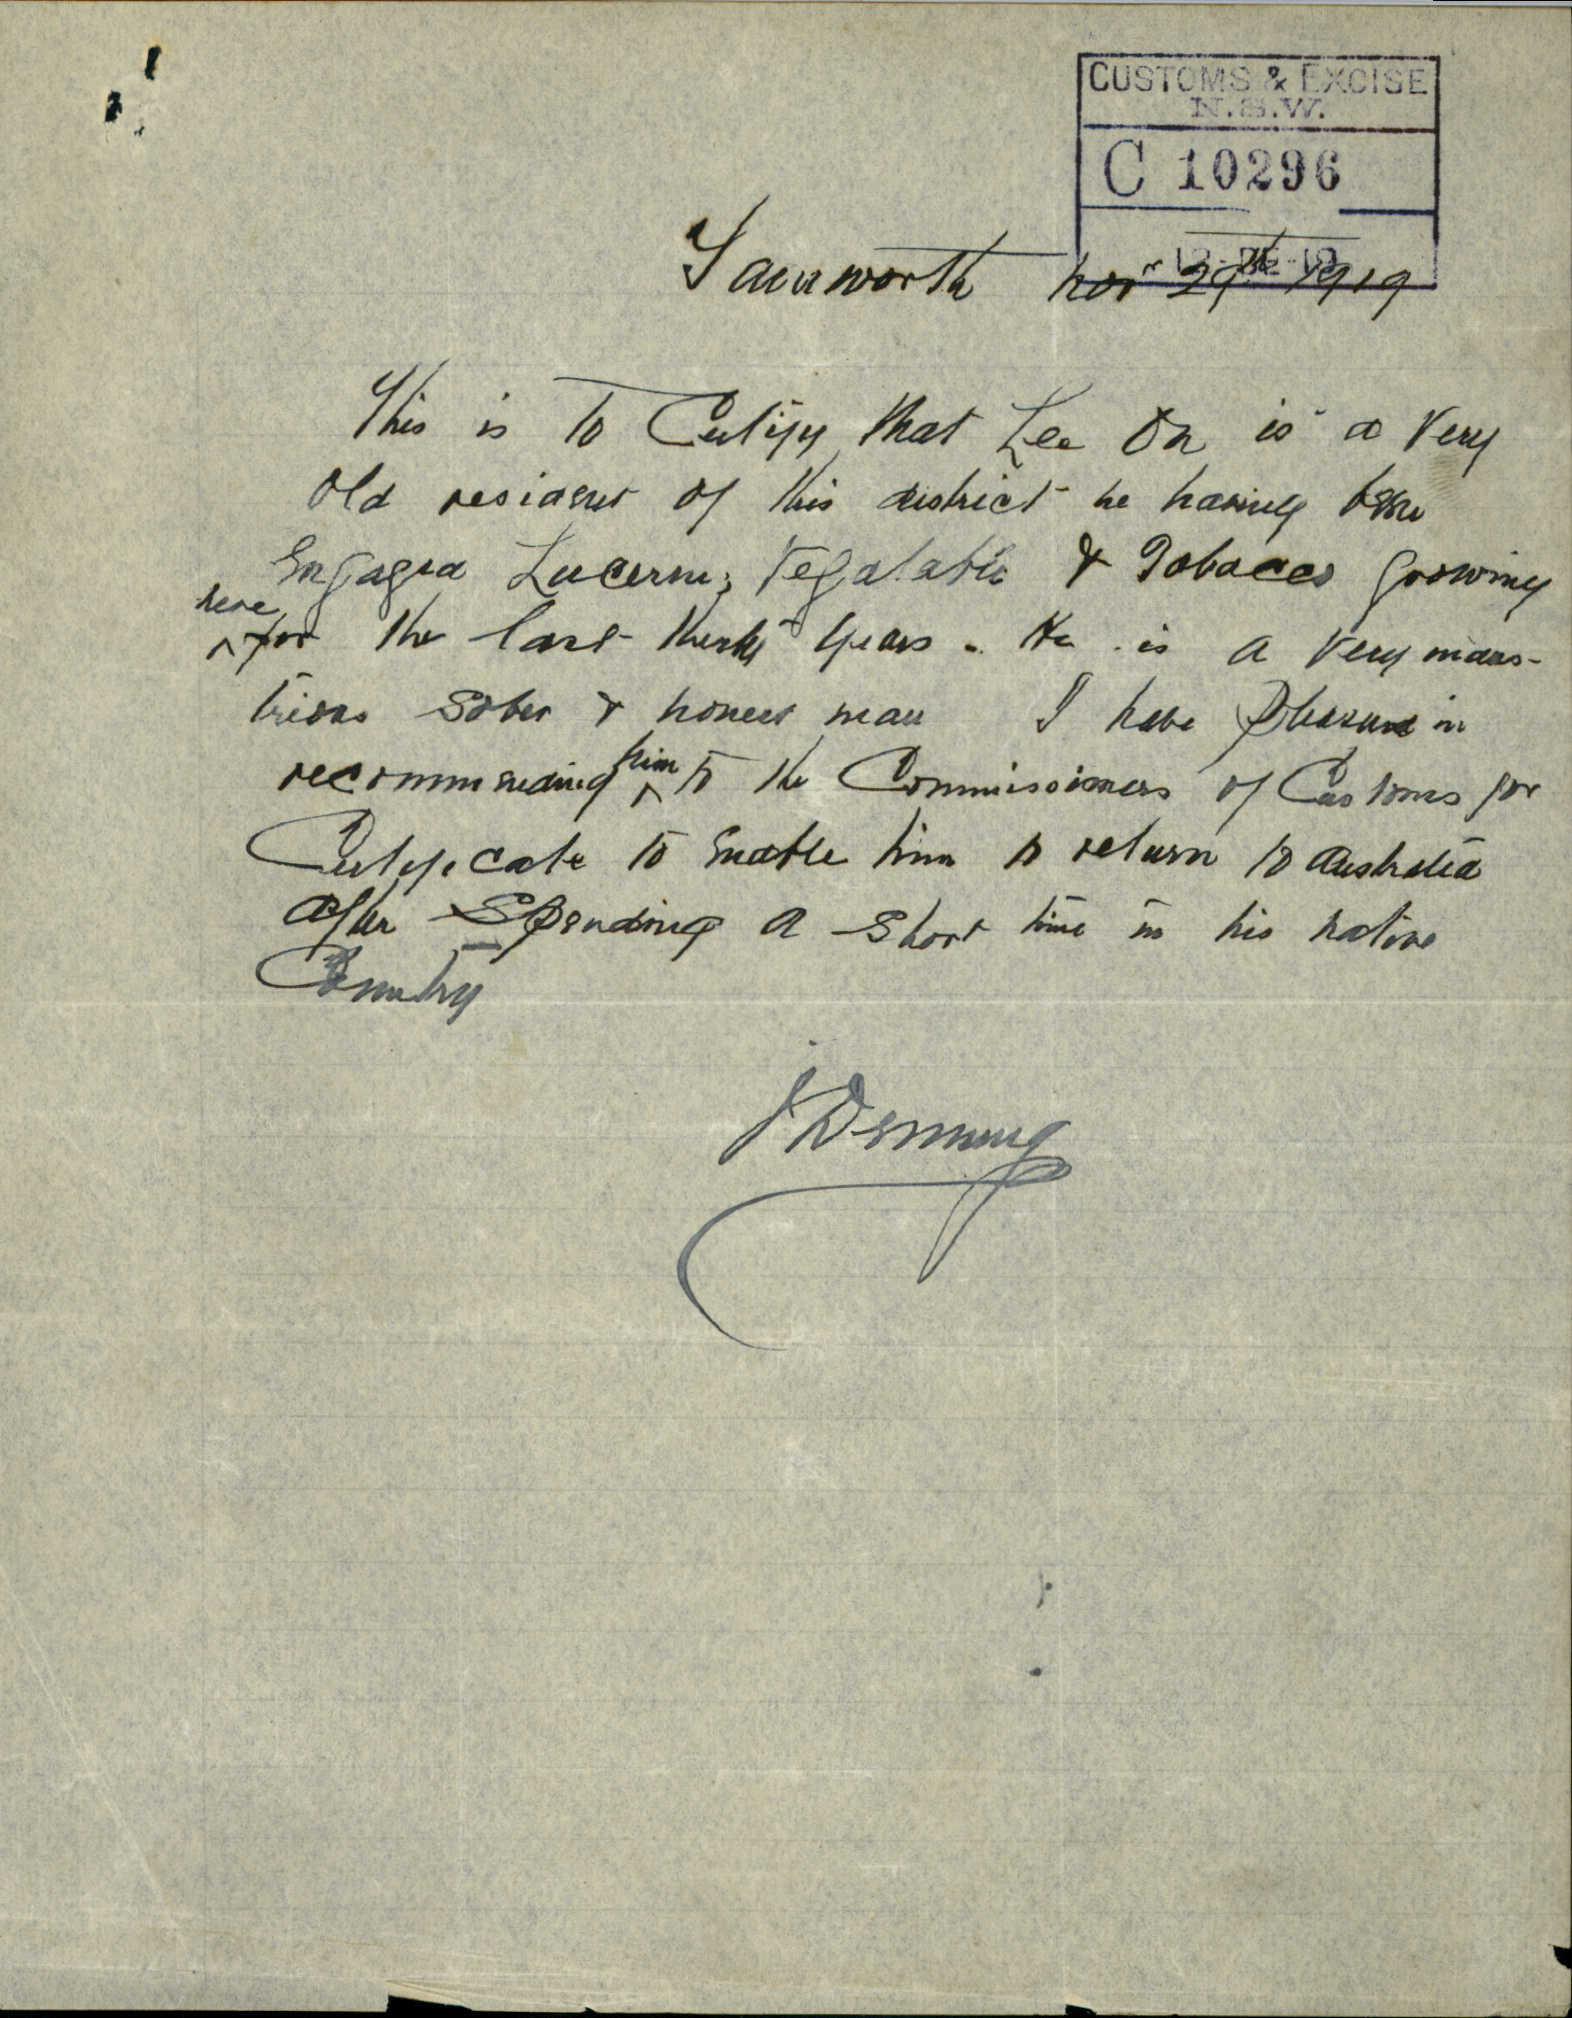 CUSTOMS & EXCISE
N.S.W.
C 10296
Tamworth Nov 29th 1919
This is to Certify that Lee On is a Very
old resident of this district he having been
Engaged Lucerne, Vegatable & Tobacco growing
here
for the last thirty years. He is a Very indus-
trious sober & honest man I have pleasure in
him
recommending to the Commissioners of Customs for
Certificate to enable him to return to Australia
after spending a short time in his native
Country
J Denning